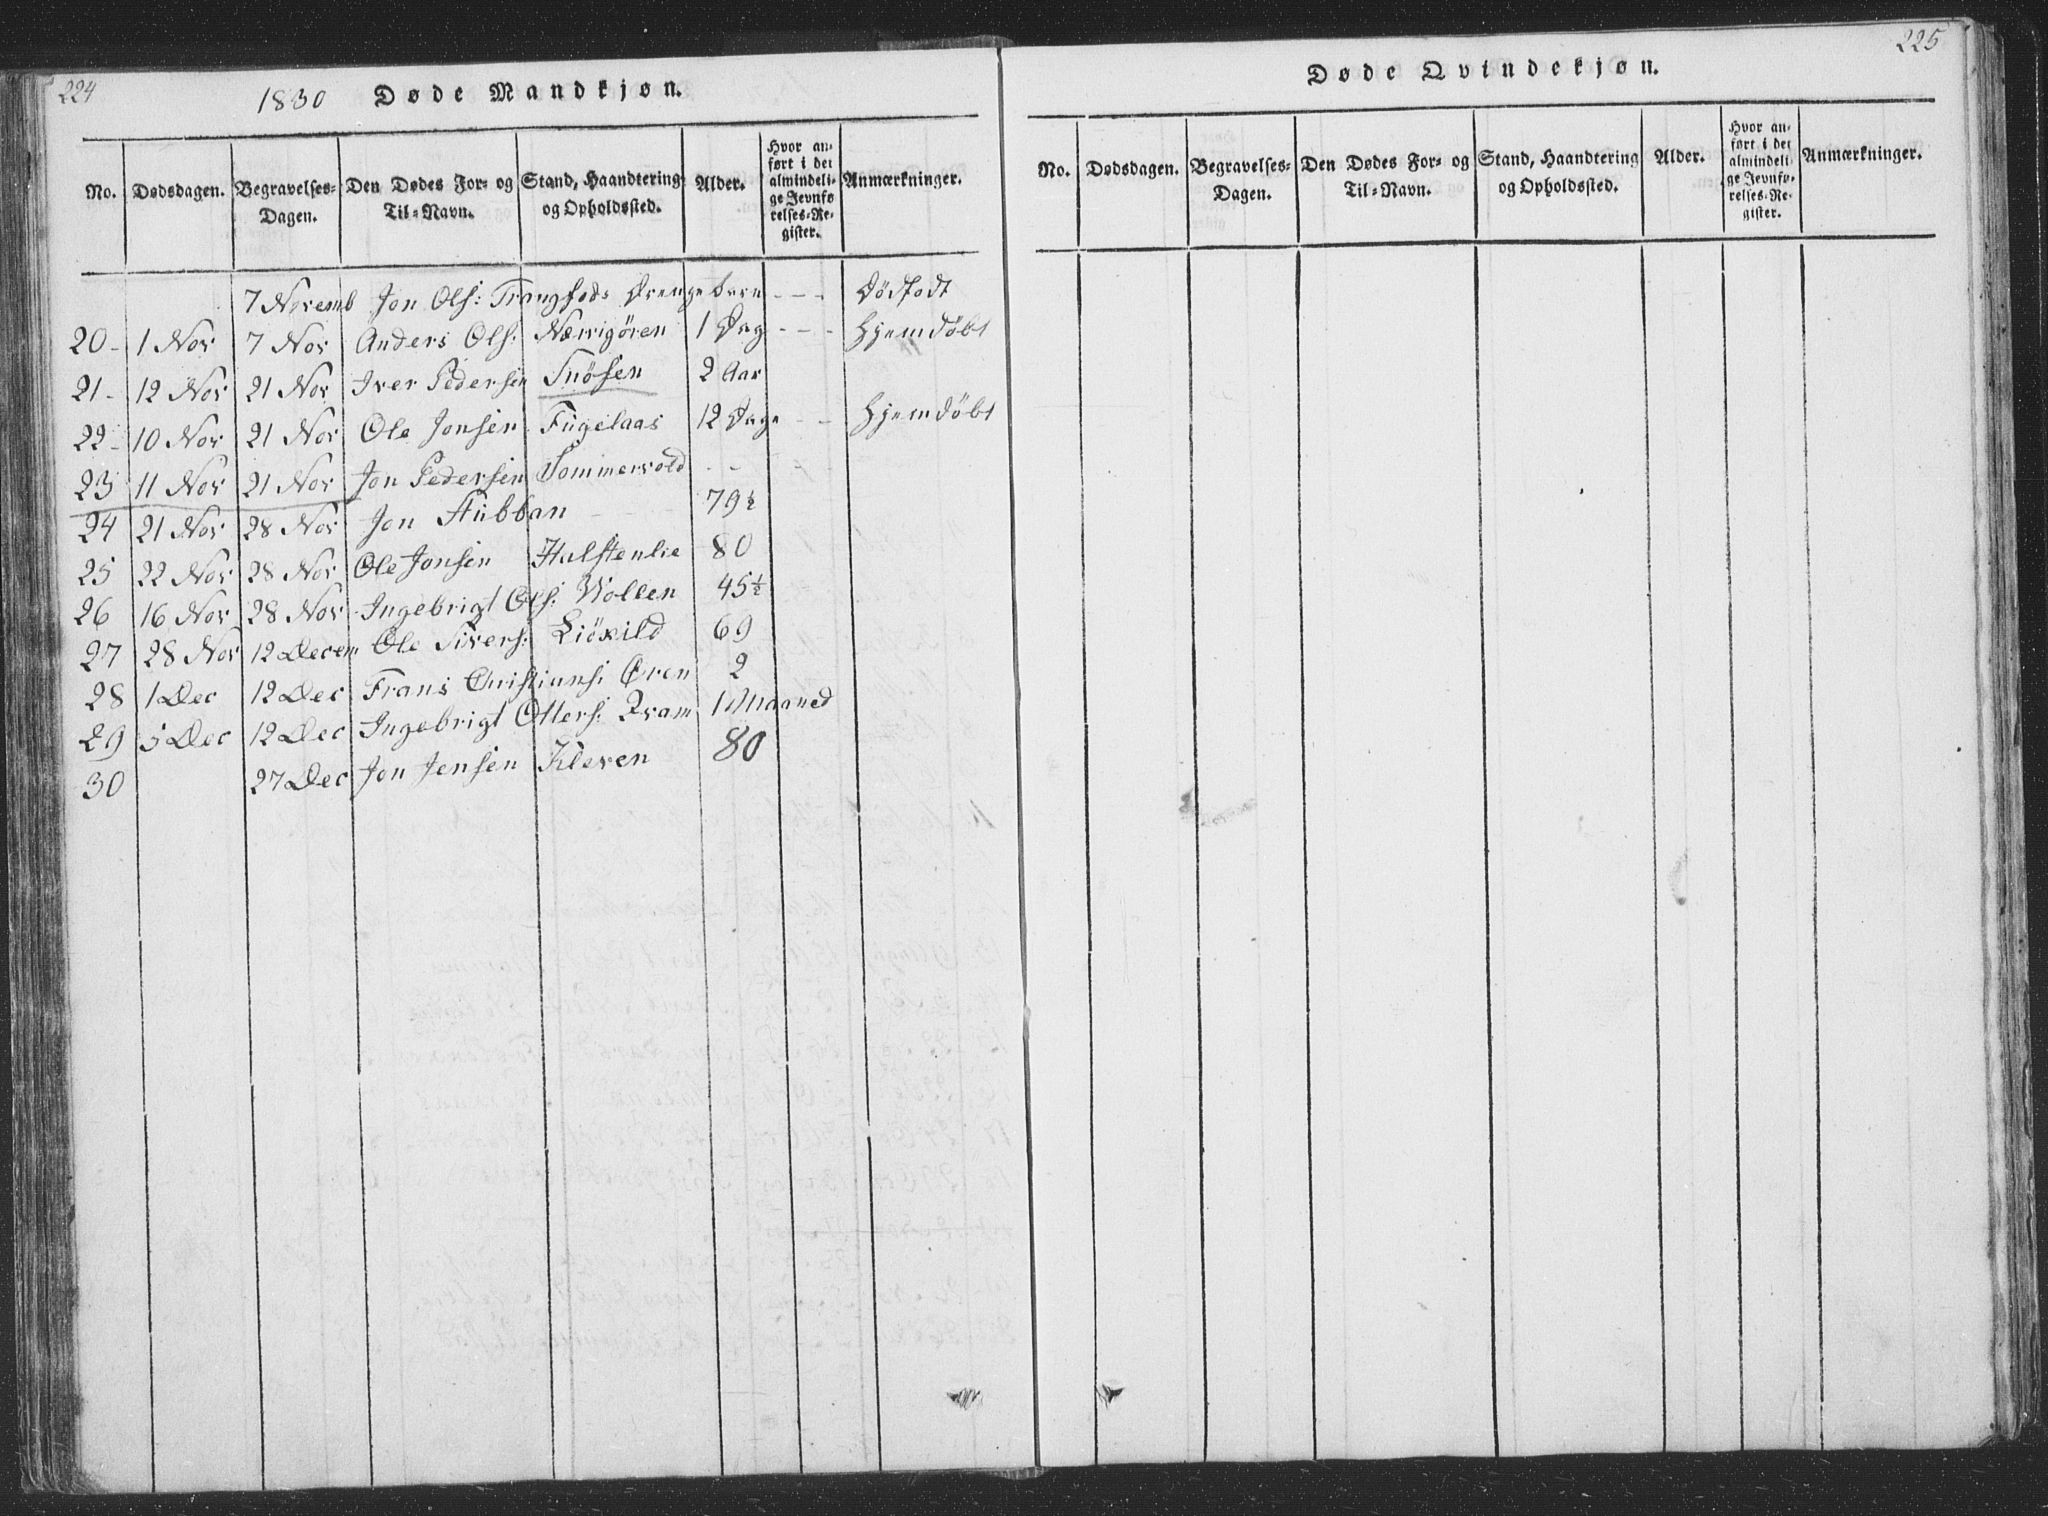 224
1830 Døde Mandkjøn.
No. Dødsdagen. Begravelses-Dagen. Den Dødes For- og Til-Navn. Stand, Haandtering og Opholdssted. Alder. Hvor anført i det almindelige Jevnførelses-Register. Anmærkninger.
7 Novemb Jon Ols: Drengebarn - - - Dödfödt
20 - 1 Nov 7 Nov Anders Ols: 1 Dag - - - Hjemdöbt
21 - 12 Nov 21 Nov Iver Pedersen Snösen 2 Aar
22 - 10 Nov 21 Nov Ole Jonsen Fuglaas 12 Dage - - Hjemdöbt
23 11 Nov 21 Nov Jon Pedersen Sommervold - -
24 21 Nov 28 Nov Jon Stübban - - - 79½
25 22 Nov 28 Nov Ole Jonsen Halstenlie 80
26 16 Nov 28 Nov Ingebrigt Ols: Vollen 45½
27 28 Nov 12 Decem Ole Sivers: 69
28 1 Dec 12 Dec Frans Christians: Øren 2
29 5 Dec 12 Dec Ingebrigt Otters: Qvam 1 Maaned
30 27 Dec Jon Jensen Kleven 80
225
Døde Qvindekjøn.
No. Dødsdagen. Begravelses-Dagen. Den Dødes For- og Til-Navn. Stand, Haandtering og Opholdssted. Alder. Hvor anført i det almindelige Jevnførelses-Register. Anmærkninger.